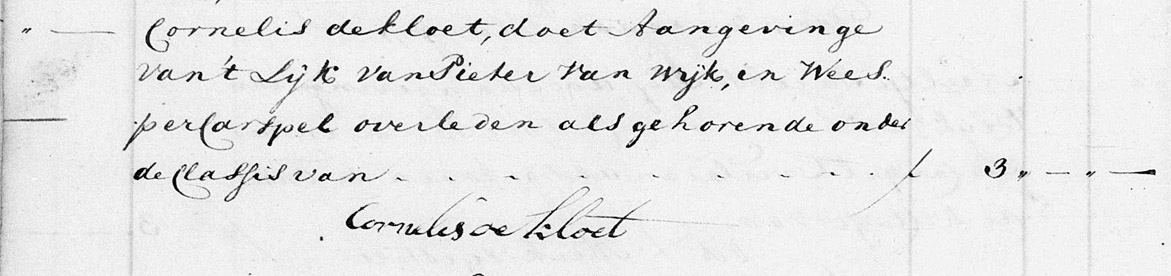 " — Cornelis de Kloet, doet Aangevinge
van 't Lijk van Pieter van Wijk, in Wees
per Carspel overleden als gehorende onder
de Classis van . . . . . . . . . . ƒ 3 " — " —
Cornelis de Kloet